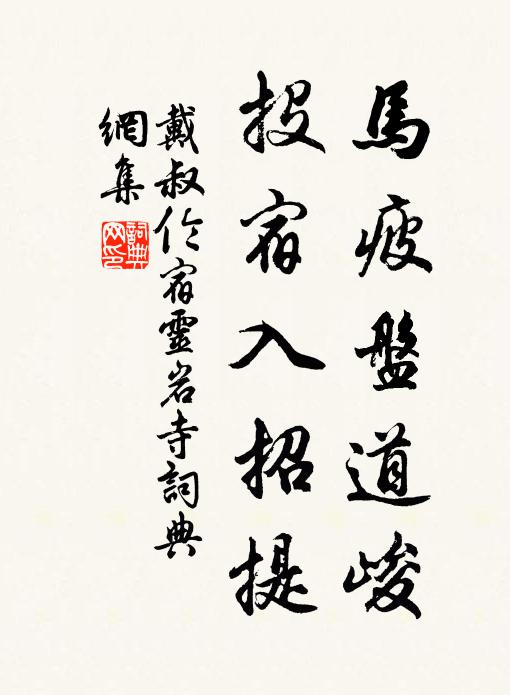 馬疲盤道峻
投宿入招提
戴叔伦宿靈岩寺詞典
網集
詞典网印